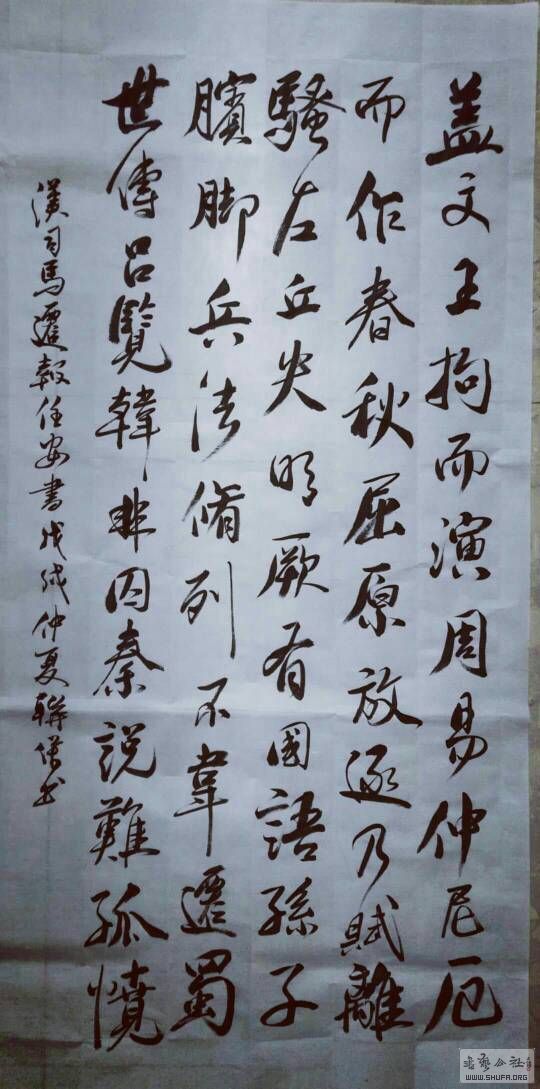 盖文王拘而演周易仲尼厄
而作春秋屈原放逐乃賦離
騷左丘失明厥有國語孫子
臏脚兵法脩列不韋遷蜀
世傳呂覽韓非囚秦説難孤憤
漢司馬遷報任安書戊戌仲夏聯书
书艺公社
WWW.SHUFA.ORG